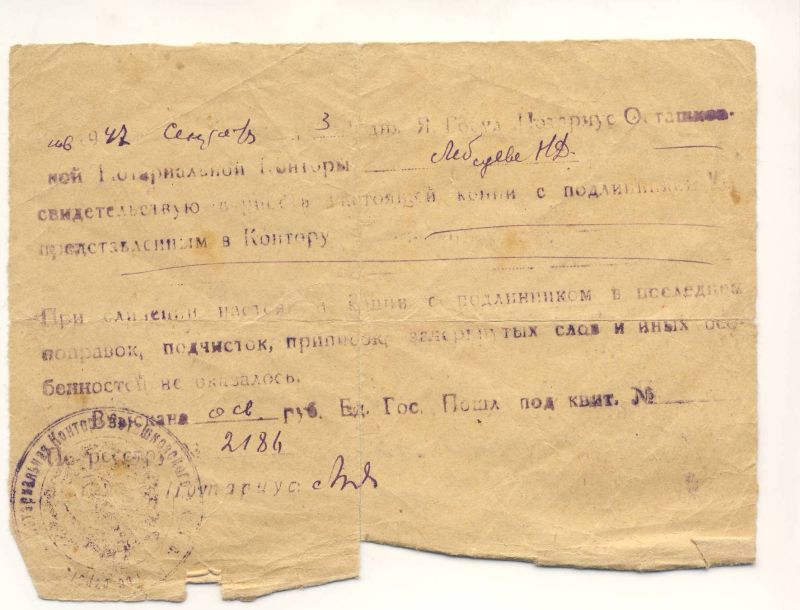 1947 сентября 3 дня Я, Госуд. Нотариус Осташков-
кой Нотариальной Конторы Лебедева Н.Д.
свидетельствую верность настоящей копии с подлинником
представленным в Контору
При сличении настоящей копии с подлинником в последнем
поправок, подчисток, приписок, зачеркнутых слов и иных осо-
бенностей не оказалось.
Взыскана осв руб. Ед. Гос. Пошл под квит. №
По реестру 2186
Нотариус
Нотариальная Контора